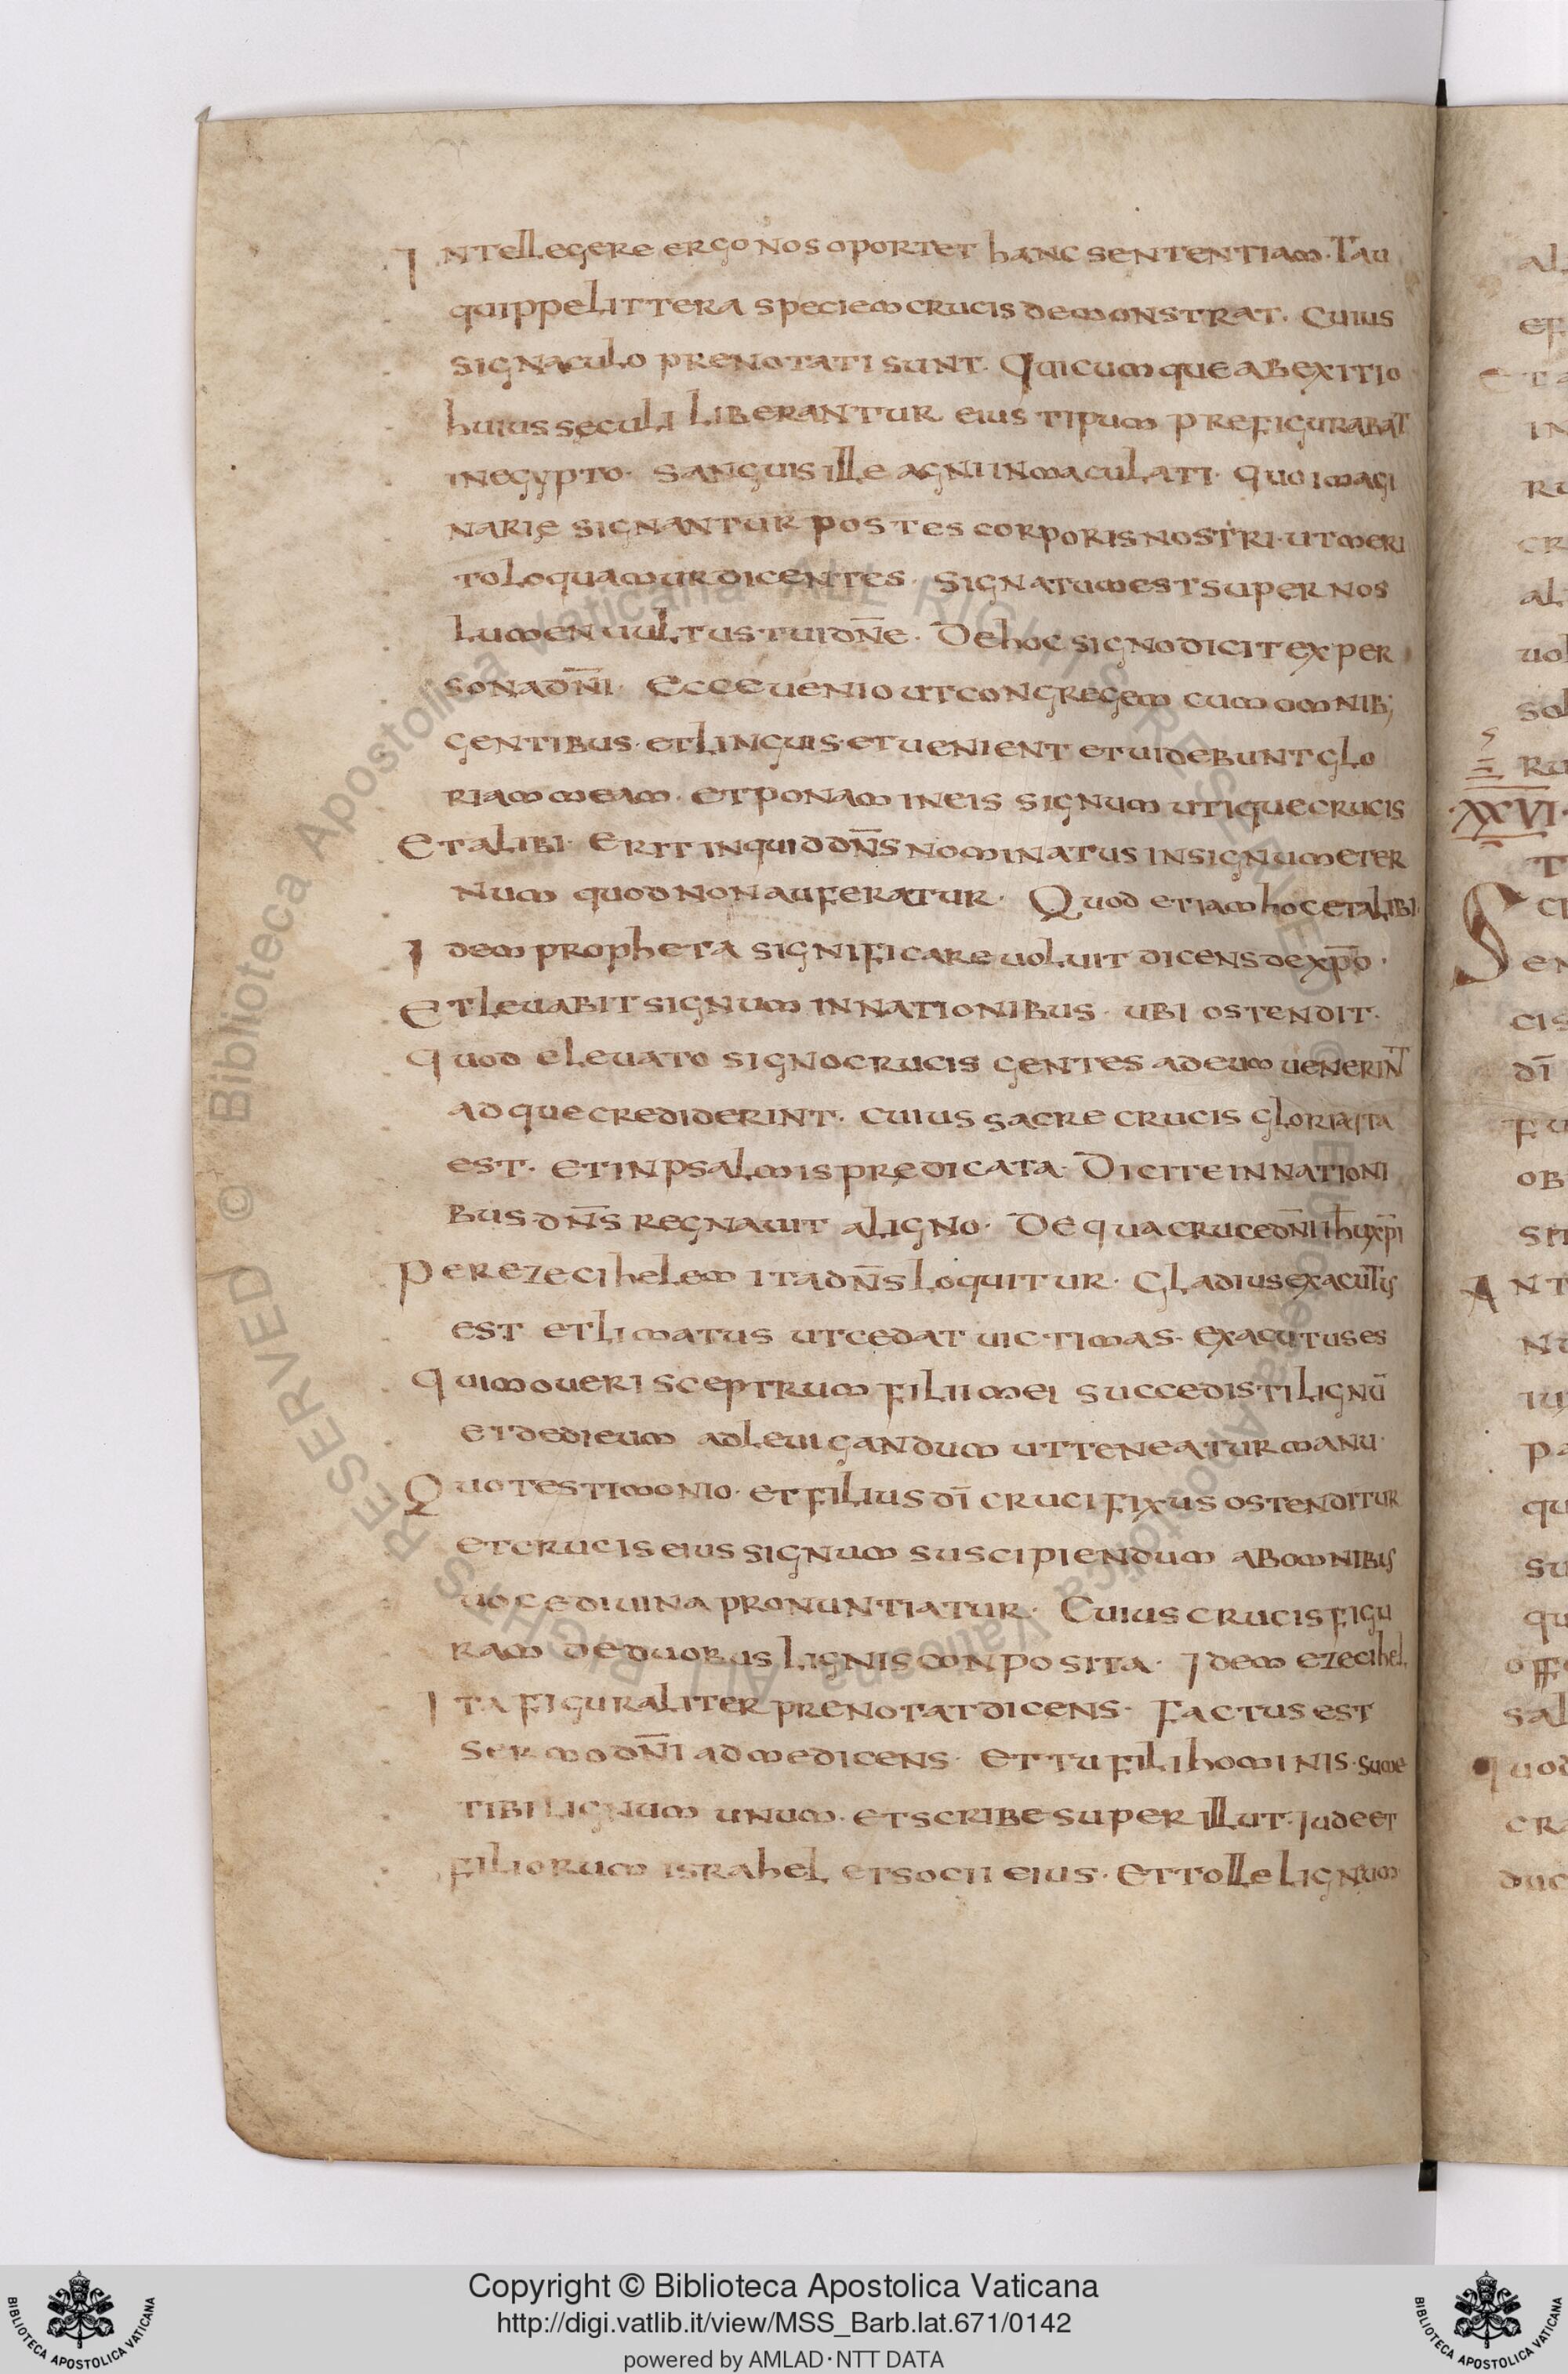 Intellegere ergo nos oportet hanc sententiam · Tau
quippe littera speciem crucis demonstrat · cuius
signaculo prenotati sunt · Quicumque ab exitio
huius sęculi liberantur eius tipum prefigurabat
in egypto · sanguis ille agni inmaculati · quo imagi
narię signantur postes corporis nostri · ut meri
to loquamur dicentes · signatum est super nos
lumen uultus tui dn̄e · De hoc signo dicit ex per
sona dn̄i · Ecce uenio ut congregem cum omnib;
gentibus · et linguis · et uenient et uidebunt glo
riam meam · et ponam in eis signum utique crucis
Et alibi · Erit inquid dn̄s nominatus in signum eter
num quod non auferatur · Quod etiam hoc et alibi ·
Idem propheta significare uoluit dicens de xp̄o ·
Et leuabit signum in nationibus · ubi ostendit ·
Quod eleuato signo crucis gentes ad eum uenerint
adque crediderint · cuius sacre crucis gloria ita
est · et in psalmis prędicata · Dicite in nationi
bus · dn̄s regnauit a ligno · De qua cruce dn̄i ih̄u xp̄i
Per ezecihelem ita dn̄s loquitur · Gladius exacutus
est et limatus ut cedat uictimas · exacutus es
Qui moueri sceptrum filii mei succedisti lignū
et dedi eum ad leuigandum ut teneatur manu ·
Quo testimonio · et filius dī crucifixus ostenditur
et crucis eius signum suscipiendum ab omnibus
uoce diuina pronuntiatur · Cuius crucis figu
ram de duobus lignis conposita · Idem ezecihel
Ita figuraliter prenotat dicens · Factus est
sermo dn̄i ad me dicens · Et tu fili hominis · sume
tibi lignum unum · et scribe super illut · Iude et
filiorum israhel et socii eius · Et tolle lignum
XXVI
Copyright © Biblioteca Apostolica Vaticana
http://digi.vatlib.it/view/MSS_Barb.lat.671/0142
powered by AMLAD·NTT DATA